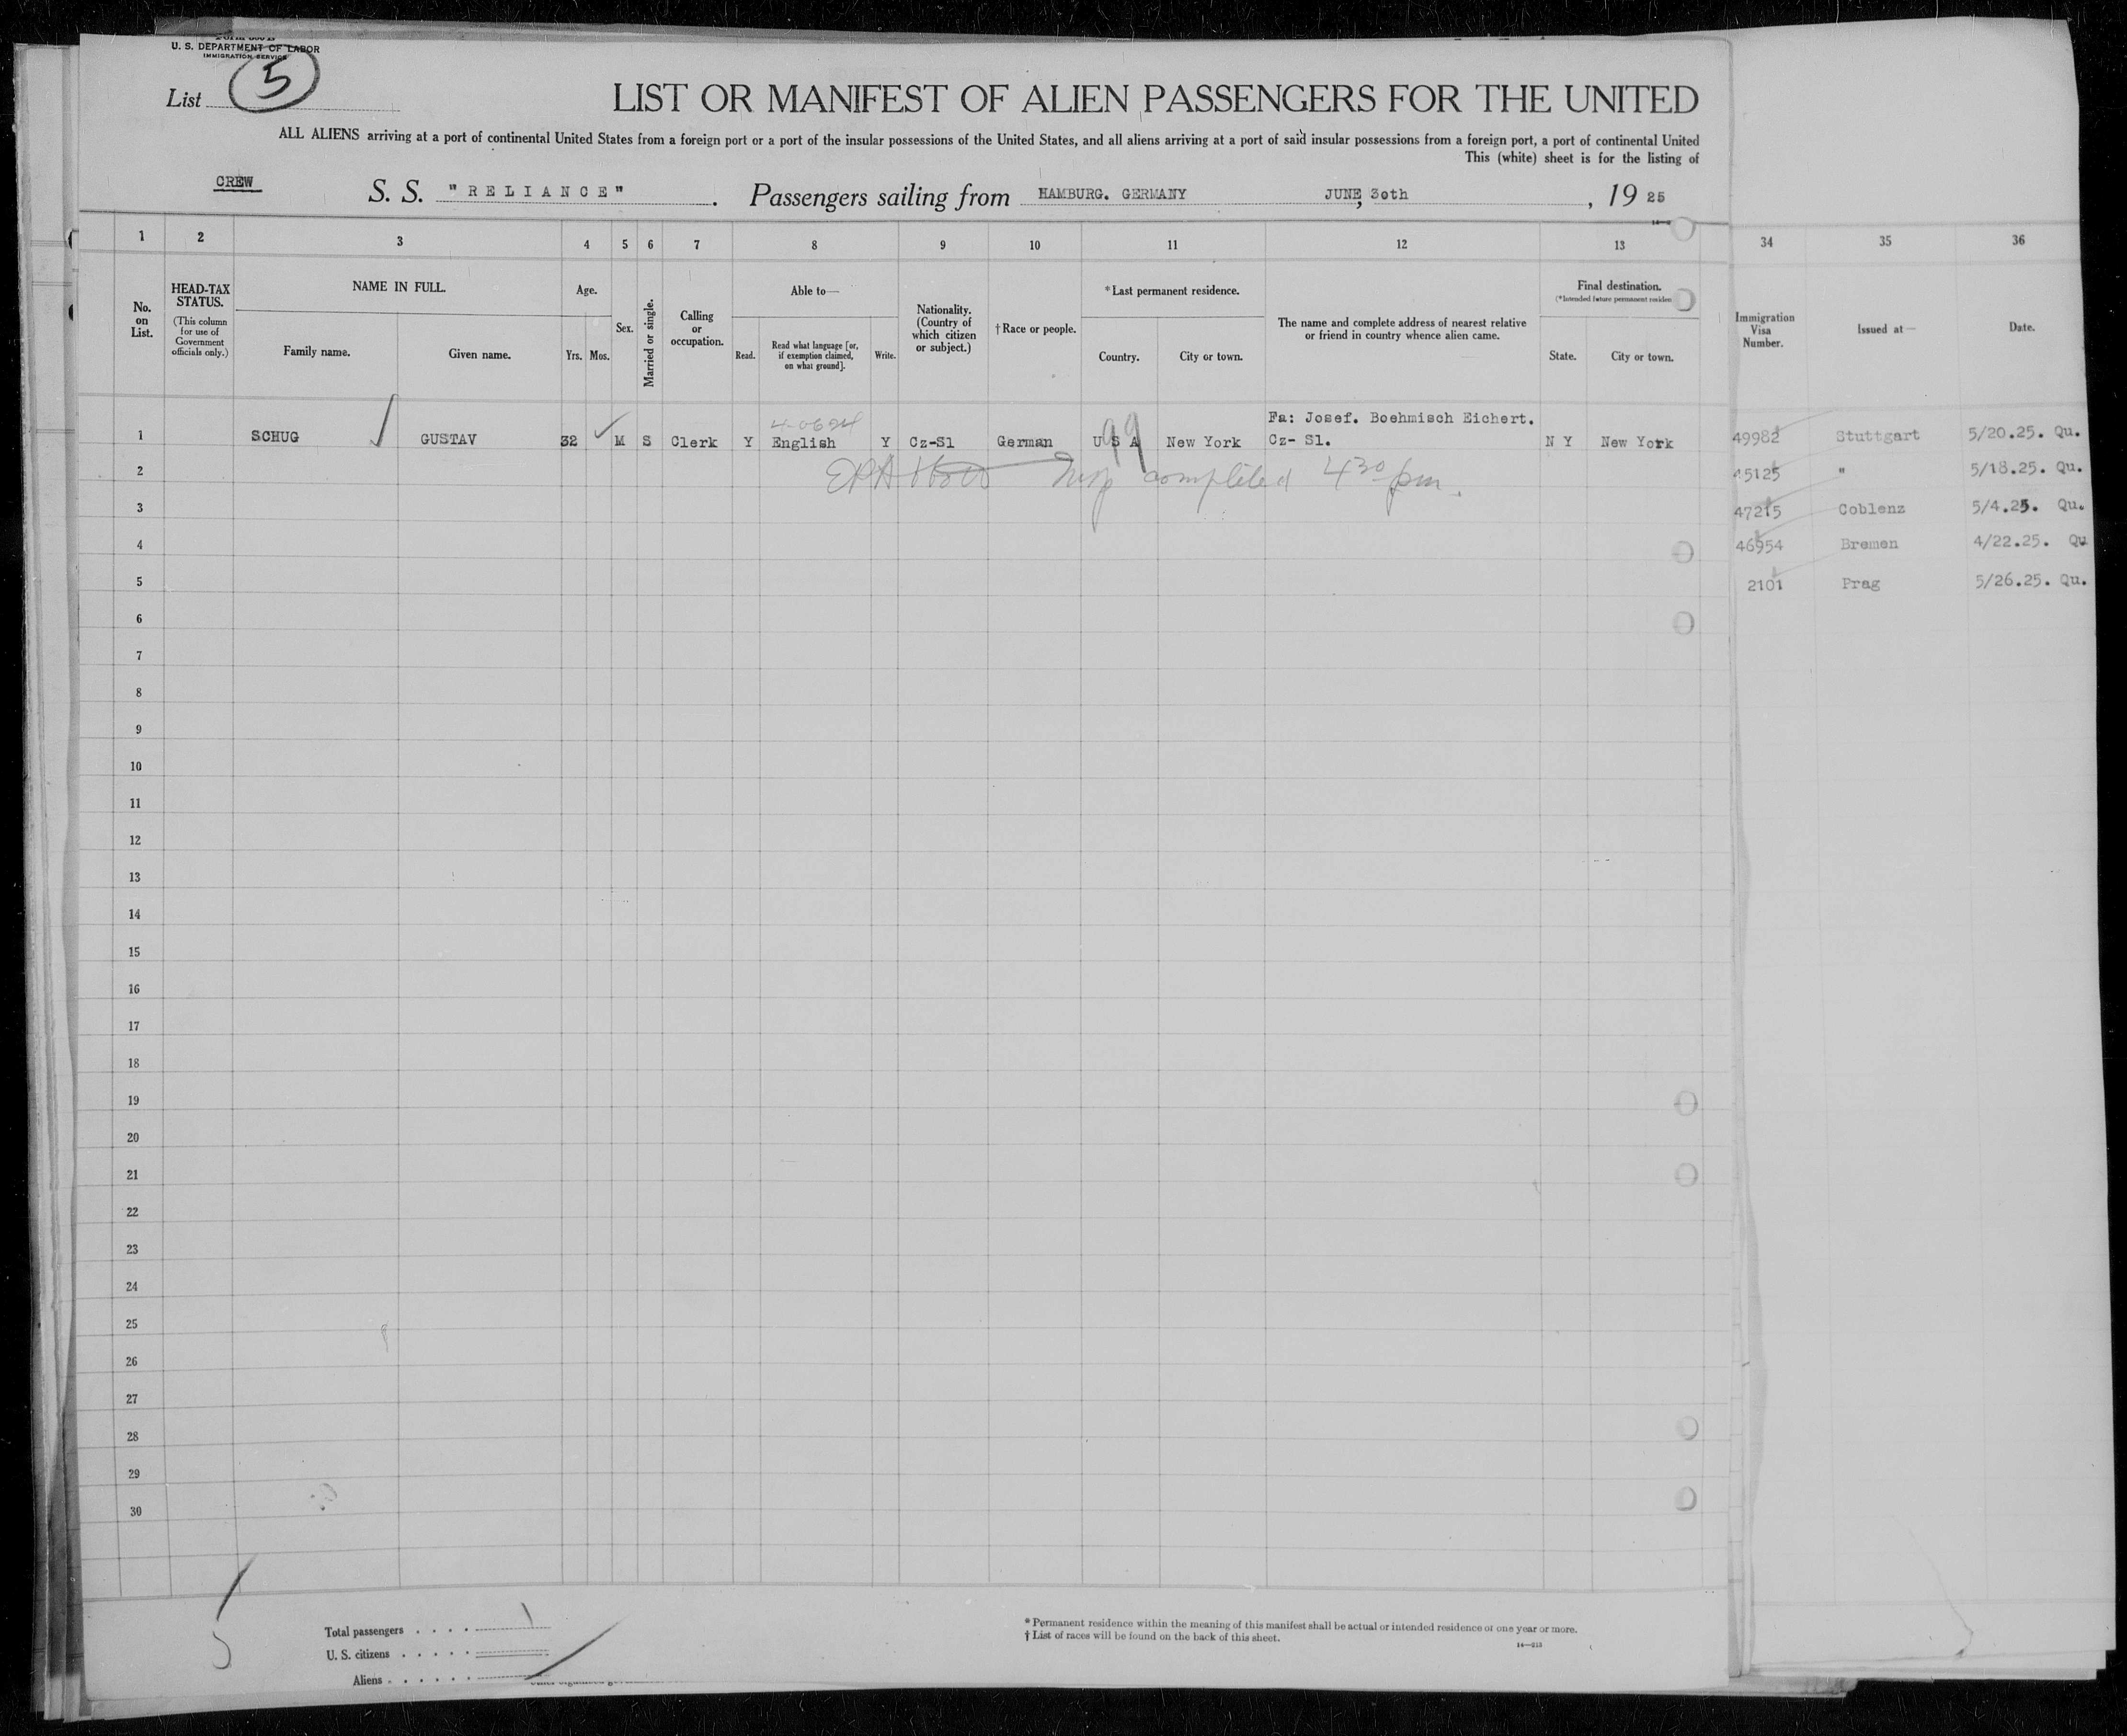 U. S. DEPARTMENT OF LABOR
IMMIGRATION SERVICE
List 5
LIST OR MANIFEST OF ALIEN PASSENGERS FOR THE UNITED
ALL ALIENS arriving at a port of continental United States from a foreign port or a port of the insular possessions of the United States, and all aliens arriving at a port of said insular possessions from a foreign port, a port of continental United
This (white) sheet is for the listing of
CREW
S. S. "RELIANCE". Passengers sailing from HAMBURG. GERMANY JUNE, 30th, 19 25
1 2 3 4 5 6 7 8 9 10 11 12 13
No. on List.
HEAD-TAX STATUS.
(This column for use of Government officials only.)
NAME IN FULL.
Family name.
Given name.
Age.
Yrs. Mos.
Sex.
Married or single.
Calling or occupation.
Able to—
Read.
Read what language [or, if exemption claimed, on what ground].
Write.
Nationality. (Country of which citizen or subject.)
† Race or people.
*Last permanent residence.
Country.
City or town.
The name and complete address of nearest relative or friend in country whence alien came.
Final destination.
(*Intended future permanent residen
State.
City or town.
34 35 36
Immigration Visa Number.
Issued at—
Date.
Fa: Josef. Boehmisch Eichert.
1 SCHUG GUSTAV 32 M S Clerk Y English Y Cz-Sl German U S A New York Cz- Sl. N Y New York
99
completed 4 30 pm.
49982 Stuttgart 5/20.25. Qu.
45125 " 5/18.25. Qu.
47215 Coblenz 5/4.25. Qu.
46954 Bremen 4/22.25. Qu
2101 Prag 5/26.25. Qu.
2
3
4
5
6
7
8
9
10
11
12
13
14
15
16
17
18
19
20
21
22
23
24
25
26
27
28
29
30
Total passengers . . . . 1
U. S. citizens . . . . .
Aliens . . . . . .
* Permanent residence within the meaning of this manifest shall be actual or intended residence of one year or more.
† List of races will be found on the back of this sheet.
14—213